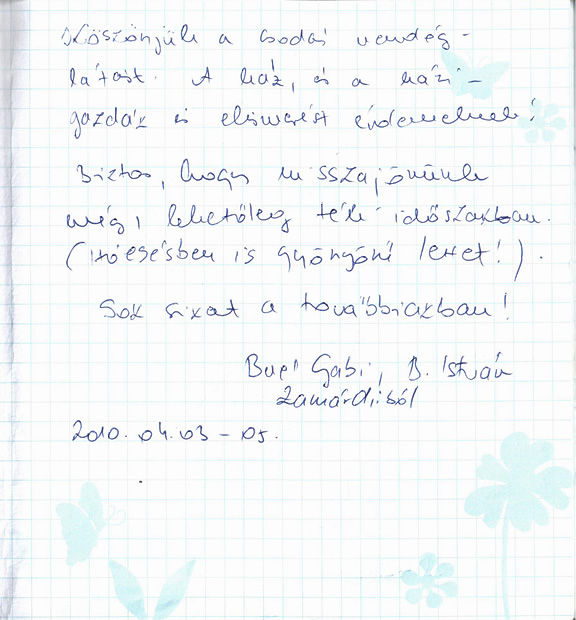 Köszönjük a csodás vendég-
látást. A ház, és a házi-
gazdák is elismerést érdemelnek!
Biztos, hogy visszajövünk
még, lehetőleg téli időszakban.
(Hóesésben is gyönyörű lehet!).
Sok sikert a továbbiakban!
Gabi, B. István
Zamárdiból
2010. 04. 03 - 05.